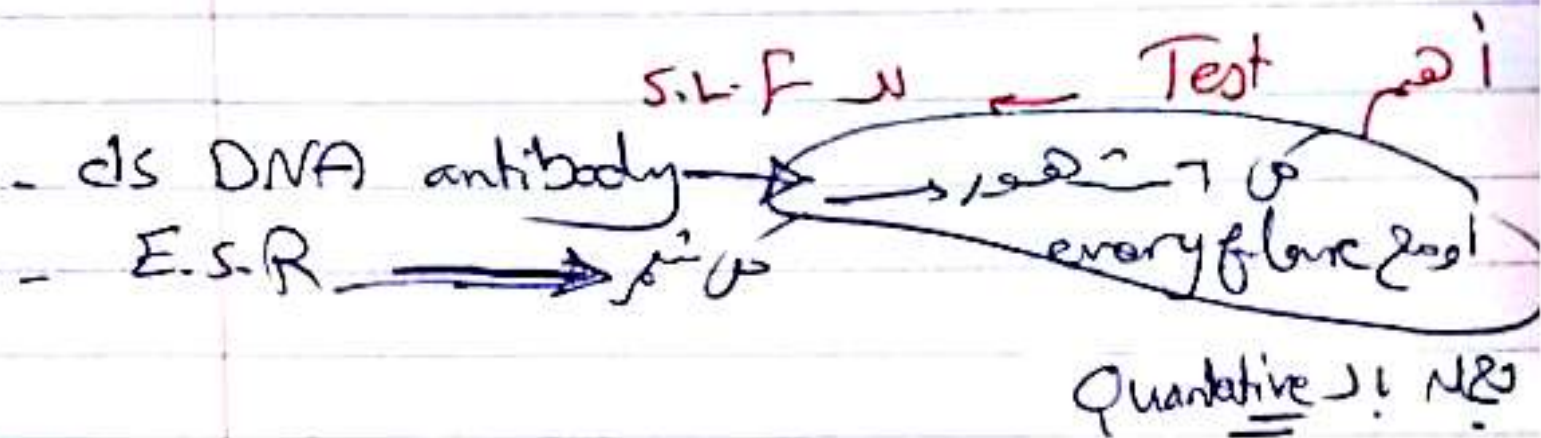 أهم Test ← لل S.L.F
- ds DNA antibody → كل ٦ شهور →
أو مع every flare
- E.S.R → كل شهر
بال Quantative